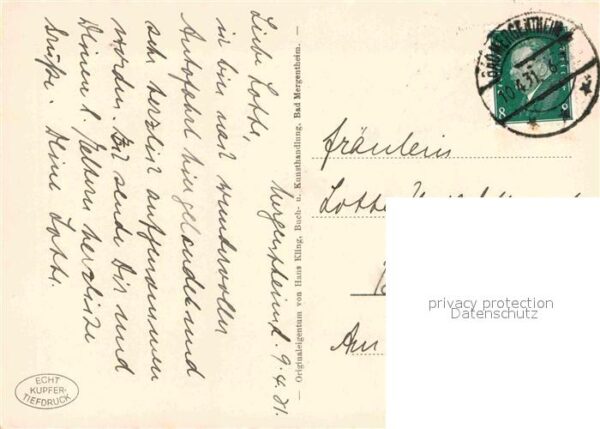 Mergentheim d. 9.4.31.
Liebe Lotte,
ich bin nach wundervoller
Autofahrt hier gelandet und
sehr herzlich aufgenommen
worden. Ich sende Dir und
Deinen l. Eltern herzliche
Grüße. Deine Lotte.
— Originaleigentum von Hans Kling, Buch- u. Kunsthandlung, Bad Mergentheim. —
ECHT
KUPFER-
TIEFDRUCK
BAD MERGENTHEIM
10.4.31.
Fräulein
Lotte
Am
privacy protection
Datenschutz